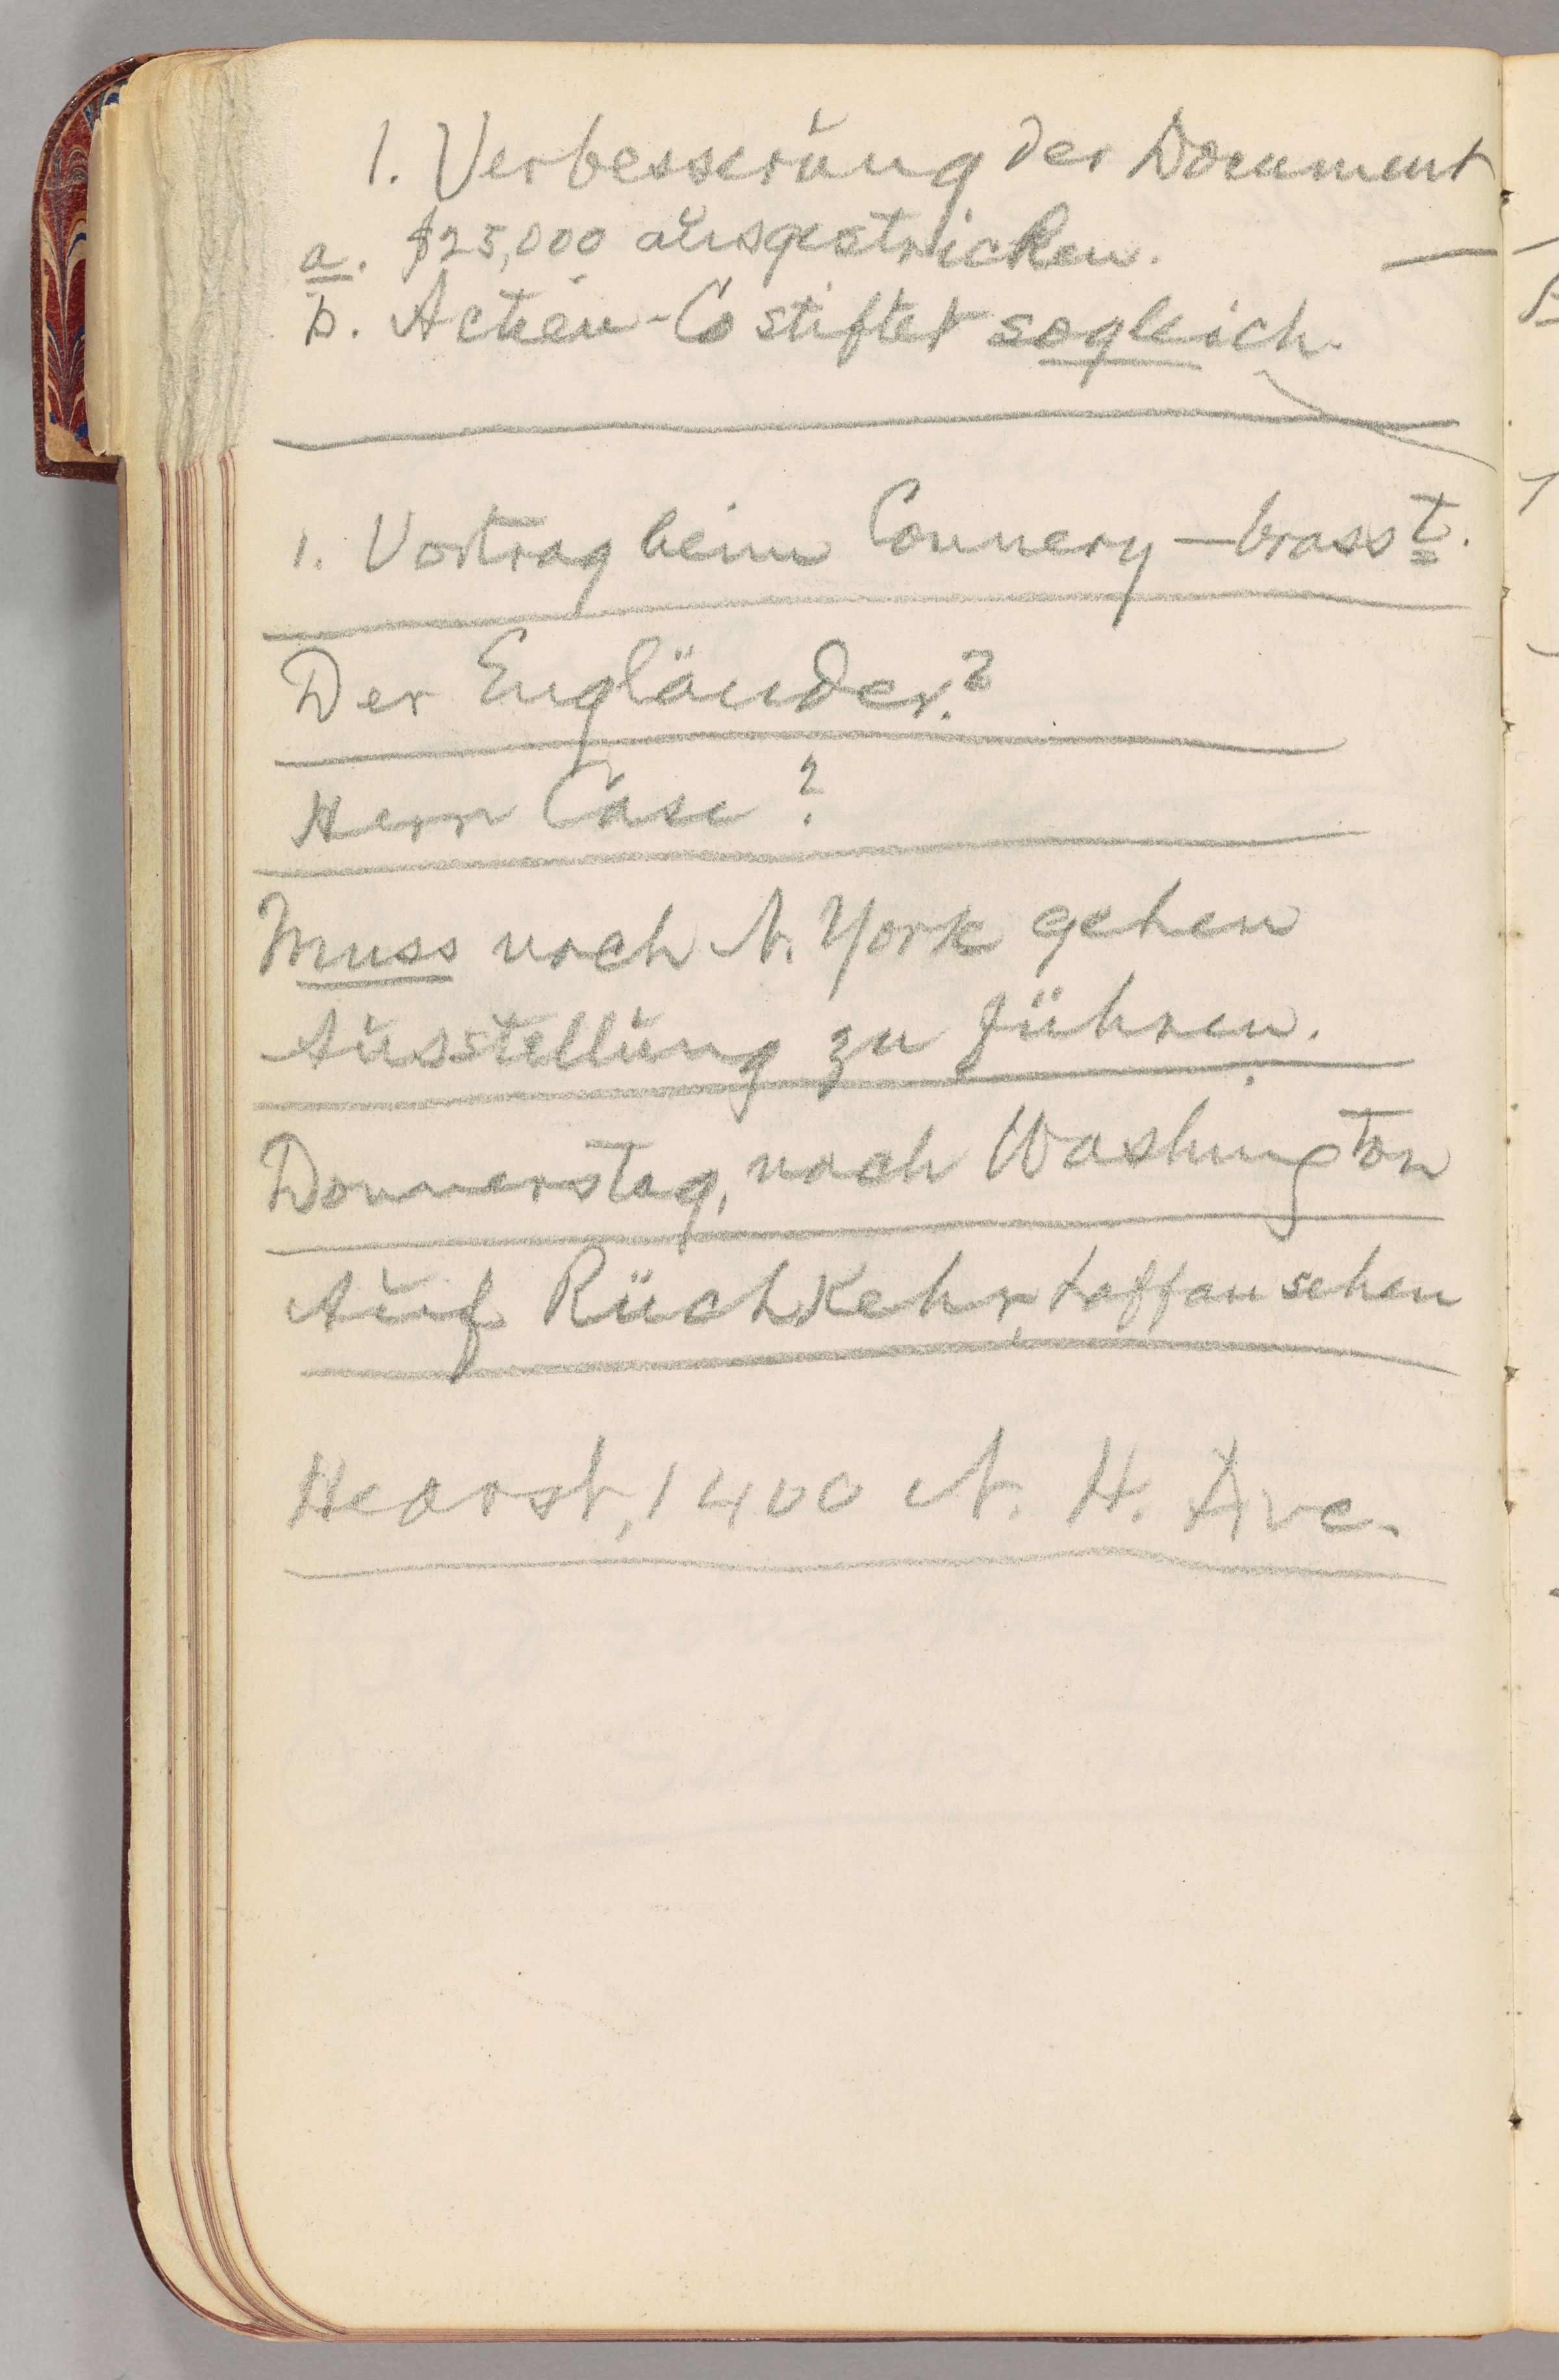 1. Verbesserung der Document
a. $25,000 ausgestrichen.
b. Actien-Co stiftet sogleich.
1. Vortrag beim Connery —
Der Engländer?
Herr Case?
Muss nach N. York gehen
Ausstellung zu führen.
Donnerstag, nach Washington
Auf Rückkehr, Laffan sehen
Hearst, 1400 N. H. Ave.